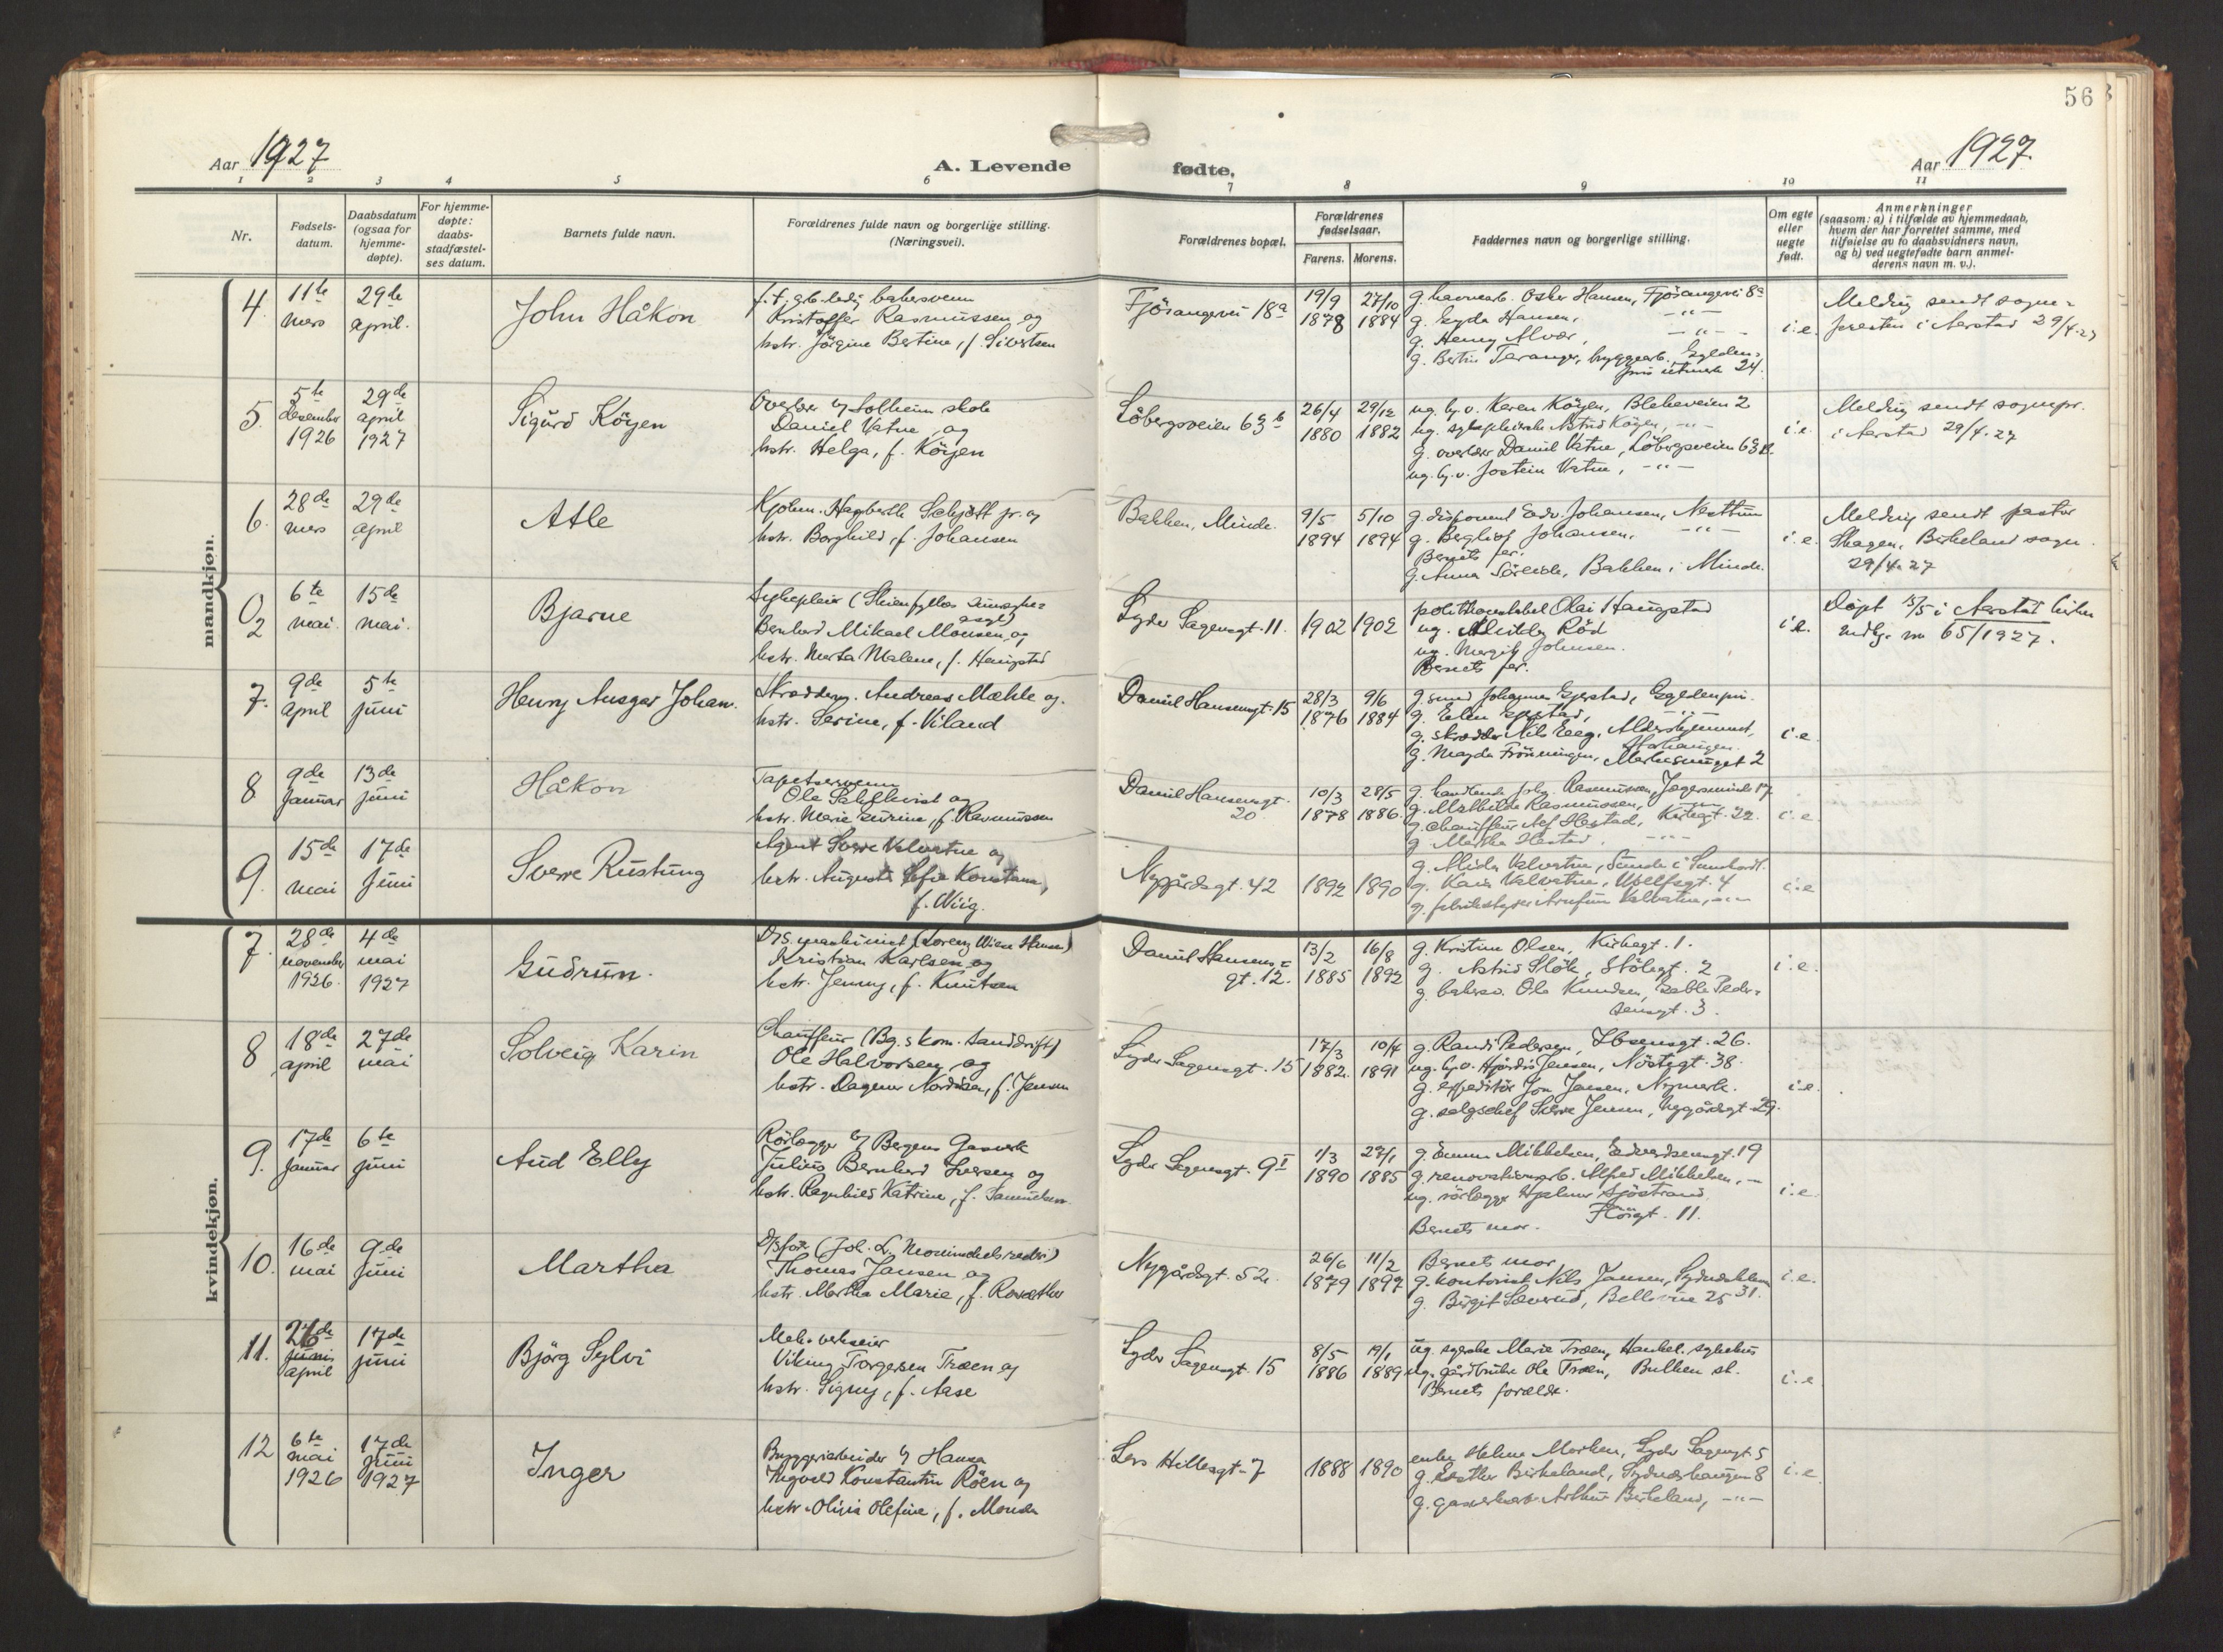 56
Aar 1927
A. Levende fødte.
Aar 1927.
1 2 3 4 5 6 7 8 9 10 11
Nr.
Fødsels-
datum.
Daabsdatum
(ogsaa for
hjemme-
døpte).
For hjemme-
døpte:
daabs-
stadfæstel-
ses datum.
Barnets fulde navn.
Forældrenes fulde navn og borgerlige stilling.
(Næringsvei).
Forældrenes bopæl.
Forældrenes
fødselsaar.
Farens. Morens.
Faddernes navn og borgerlige stilling.
Om egte
eller
uegte
født.
Anmerkninger
(saasom: a) i tilfælde av hjemmedaab,
hvem der har forrettet samme, med
tilføielse av to daabsvidners navn,
og b) ved uegtefødte barn anmel-
derens navn m. v.).
mandkjøn.
4
11te
mars
29de
april.
John Håkon
f. t. arb. ledig bakersvenn
Kristoffer Rasmussen og
hstr. Jörgine Bertine, f. Sivertsen
Fjösangervei 18a
19/9
1878
27/10
1884
g. havnearb. Oskar Hansen, Fjösangervei 8a
g. Gyda Hansen, -"-
g. Henny Alvær, -"-
g. Bertin Taranger, bryggearb.
24.
i.e.
Meldig sendt sogne-
presten i Aarstad 29/4-27
5.
5te
desember
1926
29de
april
1927
Sigurd Köyen
Overlær v/ Solheim skole
Daniel Vatne og
hstr. Helga, f. Köyen
Löbergsveien 63b
26/4
1880
29/12
1882
ug. hj.v. Karen Köyen, Blekeveien 2
ug. sykepleierske Astrid Köyen, -"-
g. overlær Daniel Vatne, Löbergsveien 63B.
ug. hj.v. Jostein Vatne, -"-
i.e.
Meldig sendt sognepr.
i Aarstad 29/4-27
6.
28de
mars
29de
april
Atle
Kjøbm. Hagbarth Schjött jr. og
hstr. Borghild, f. Johansen
Bakken, Minde.
9/5
1894
5/10
1894
g. disponent Edv. Johansen, Nesttun
g. Bergliot Johansen, -"-
Barnets far.
g. Anna Söreide, Bakken i Minde.
i.e.
Meldig sendt pastor
Skagen, Birkeland sogn.
29/4-27
O2
6te
mai.
15de
mai.
Bjarne
Bernhard Mikael Monsen og
hstr. Marta Malene, f. Haugstad
Lyder Sagensgt. 11.
1902 1902
politikonstabel Olai Haugstad
ug. Röd
ug. Margit Johnsen.
Barnets far.
i.e.
Döpt 15/5 i Aarstad kirke
nr 65/1927.
7.
9de
april
5te
juni
Henry Ansgar Johan.
Skrædderm. Andreas Mæhle og.
hstr. Serine, f. Viland
Daniel Hansensgt. 15
28/3
1876
9/6
1884
g. smed Johannes Gjerstad, Gyldenpris.
g. Elen Gjerstad, -"-
g. skrædder Nils Eeg,
g. Magda Frönningen, 2
i.e.
8
9de
januar
13de
juni
Håkon
Tapetsersvenn
Ole Sahlkvist og
hstr. Marie Gurine, f. Rasmussen
Daniel Hansensgt.
20
10/3
1878
28/5
1886.
g. Rasmussen, 17
g. Mathilde Rasmussen, -"-
g. chauffeur Alf Hestad, Kirkegt. 22.
g. Martha Hestad. -"-
i.e.
9.
15de
mai
17de
juni
Sverre Rustung
Agent Sverre Valvatne og
hstr. Augusta Sofie Konstanse,
f. Wiig.
Nygårdsgt. 42
1892 1890
g. Alida Valvatne, Sunde i Sundhordl.
g. Valvatne, 4
g. fabrikstyrer Arnfinn Valvatne, -"-
i.e.
kvindekjøn.
7.
28de
november
1926.
4de
mai
1927
Gudrun.
D/S maskinist (Lorentz Wiese Hansen)
Kristian Karlsen og
hstr. Jenny, f. Knutsen
Daniel Hansens-
gt. 12.
13/2
1885
16/8
1892
g. Kristine Olsen, Kirkegt. 1.
g. Astrid Slök, Stölegt. 2
g. bakersv. Ole Knudsen, Gabbe Peder-
sensgt. 3.
i.e.
8
18de
april
27de
mai
Solveig Karin
Chauffeur (Bg.s kom. sanddrift)
Ole Halvorsen og
hstr. Dagmar Nordine, f. Jensen
Lyder Sagensgt. 15
17/3
1882.
10/4
1891
g. Randi Pedersen, Ibsensgt. 26.
ug. hj.v. Hjördis Jensen, Nöstegt. 38.
g. expeditör Jon Jansen, Nymark.
g. salgschef Sverre Jensen, Nygårdsgt. 29.
i.e.
9.
17de
januar
6te
juni
Aud Elly
Rörlegger v/ Bergens Gasverk
Julius Bernhard Iversen og
hstr. Ragnhild Katrine, f. Samuelsen.
Lyder Sagensgt. 9I
1/3
1890
27/1
1885
g. Emma Mikkelsen, Edvardsensgt. 19
g. renovationsarb. Alfred Mikkelsen, -"-
ug. rörlegger Hjalmar Sjöstrand,
Flöigt. 11.
Barnets mor.
i.e.
10.
16de
mai
9de
juni
Martha
Thomas Jansen og
hstr. Martha Marie, f.
Nygårdsgt. 52.
26/6
1879
11/2
1897
Barnets mor,
g. kontorist Nils Jansen, 31.
g. Birgit Sæverud, Bellevue 25
i.e.
11.
26de
juni
april
17de
juni
Björg Sylvi
Mek. verkseier
Viking Torgersen Træen og
hstr. Signy, f. Aase
Lyder Sagensgt. 15
8/5
1886
19/1
1889
ug. sykepl. Marie Træen, Haukel. sykehus
ug. gårdbruker Ole Træen, Bulken st.
Barnets foreldre.
i.e.
12
6te
mai
1926
17de
juni
1927
Inger
Bryggeriarbeider v/ Hansa
Ingvald Konstantin Röen og
hstr. Olivia Olefine, f. Monsen
Lars Hillesgt. 7
1888 1890
enke Helene Marken, Lyder Sagensgt. 5
g. Esther Birkeland, Sydneshaugen 8
g. gasverksarb. Arthur Birkeland, -"-
i.e.